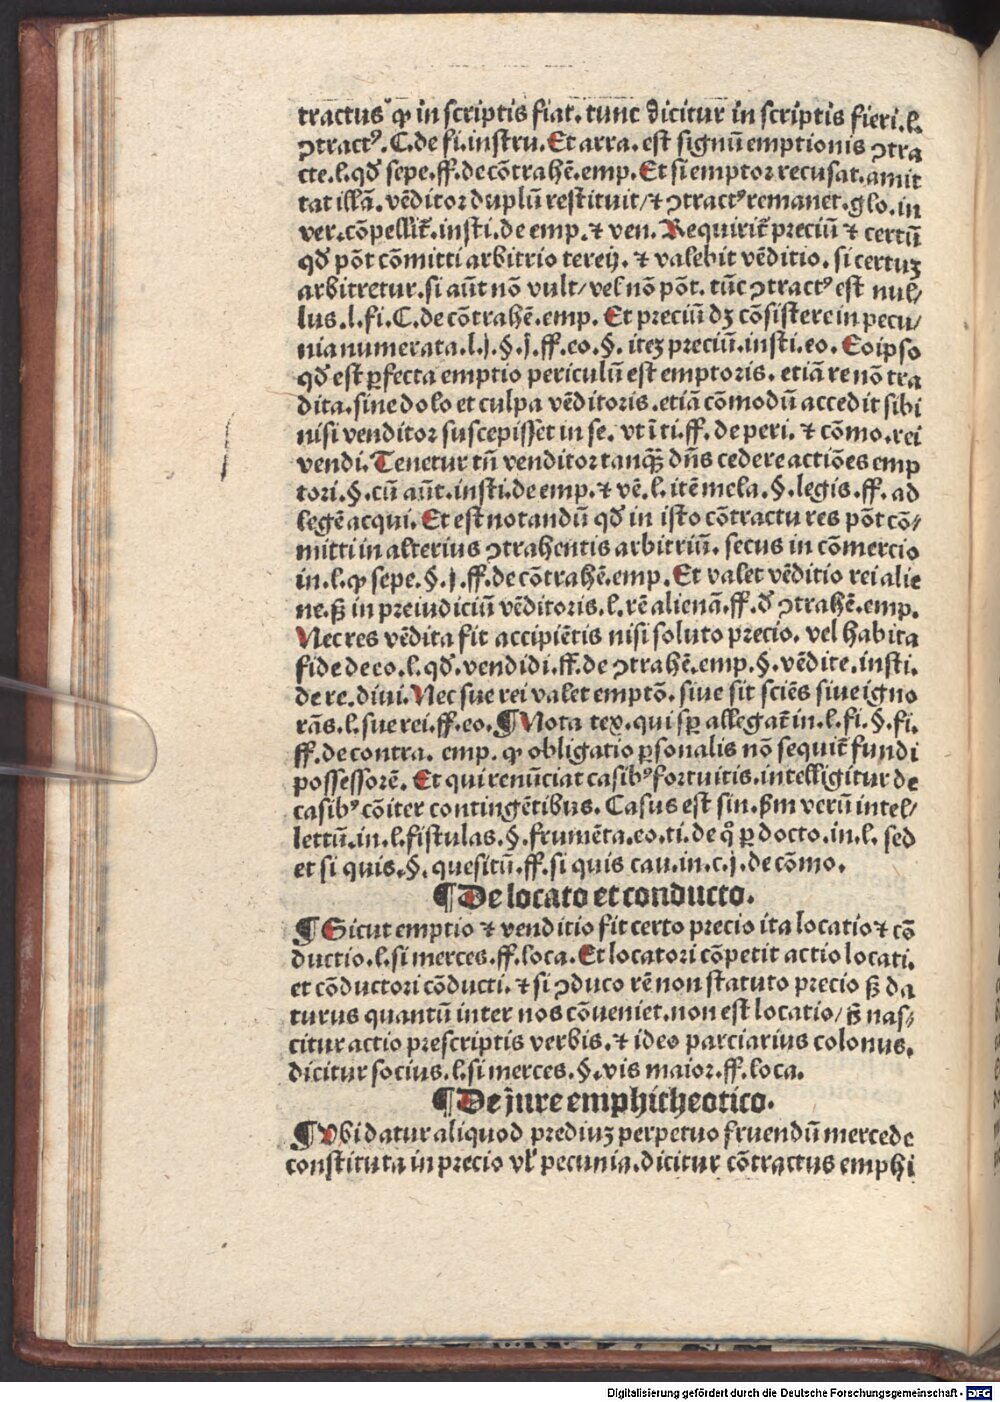 tractus ꝙ in scriptis fiat. tunc dicitur in scriptis fieri. l.
ꝯtractꝰ. C. de fi. instru. Et arra. est signū emptionis ꝯtra
cte. l. qđ sepe. ff. de cōtrahē. emp. Et si emptor recusat. amit
tat illā. vēditor duplū restituit/ ⁊ ꝯtractꝰ remanet. glo. in
ver. cōpellit̄. insti. de emp. ⁊ ven. Requirit̄ preciū ⁊ certū
qđ pōt cōmitti arbitrio tereij. ⁊ valebit vēditio. si certuꝫ
arbitretur. si aūt nō vult/ vel nō pōt. tūc ꝯtractꝰ est nul/
lus. l. fi. C. de cōtrahē. emp. Et preciū dꝫ cōsistere in pecu/
nia numerata. l. j. §. j. ff. eo. §. iteꝫ preciū. insti. eo. Eo ipso
qđ est ꝑfecta emptio periculū est emptoris. etiā re nō tra
dita. sine dolo et culpa vēditoris. etiā cōmodū accedit sibi
nisi venditor suscepisset in se. vt ī ti. ff. de peri. ⁊ cōmo. rei
vendi. Tenetur tn̄ venditor tanqꝫ̄ dn̄s cedere actiōes emp
tori. §. cū aūt. insti. de emp. ⁊ vē. l. itē mela. §. legis. ff. ad
legē acqui. Et est notandū qđ in isto cōtractu res pōt cō/
mitti in alterius ꝯtrahentis arbitriū. secus in cōmercio
in. l. ꝙ sepe. §. j. ff. de cōtrahē. emp. Et valet vēditio rei alie
ne. ß in preiudiciū vēditoris. l. rē alienā. ff. đ ꝯtrahē. emp.
Nec res vēdita fit accipiētis nisi soluto precio. vel habita
fide de eo. l. qđ. vendidi. ff. de ꝯtrahē. emp. §. vēdite. insti.
de re. diui. Nec sue rei valet emptō. siue sit sciēs siue igno
rās. l. sue rei. ff. eo. ¶ Nota tex. qui sꝑ allegat̄ in. l. fi. §. fi.
ff. de contra. emp. ꝙ obligatio ꝑsonalis nō sequit̄ fundi
possessorē. Et qui renūciat casibꝰ fortuitis. intelligitur de
casibꝰ cōiter contingētibus. Casus est sin. ẜm verū intel/
lettū. in. l. fistulas. §. frumēta. eo. ti. de qͦ ꝑ docto. in. l. sed
et si quis. §. quesitū. ff. si quis cau. in. c. j. de cōmo.
¶ De locato et conducto.
¶ Sicut emptio ⁊ venditio fit certo precio ita locatio ⁊ cō
ductio. l. si merces. ff. loca. Et locatori cōpetit actio locati.
et cōductori cōducti. ⁊ si ꝯduco rē non statuto precio ß da
turus quantū inter nos cōueniet. non est locatio/ ß nas/
citur actio prescriptis verbis. ⁊ ideo parciarius colonus.
dicitur socius. l. si merces. §. vis maior. ff. loca.
¶ De jure emphitheotico.
¶ Vbi datur aliquod prediuꝫ perpetuo fruendū mercede
constituta in precio vł pecunia. dicitur cōtractus emphi
Digitalisierung gefördert durch die Deutsche Forschungsgemeinschaft - DFG